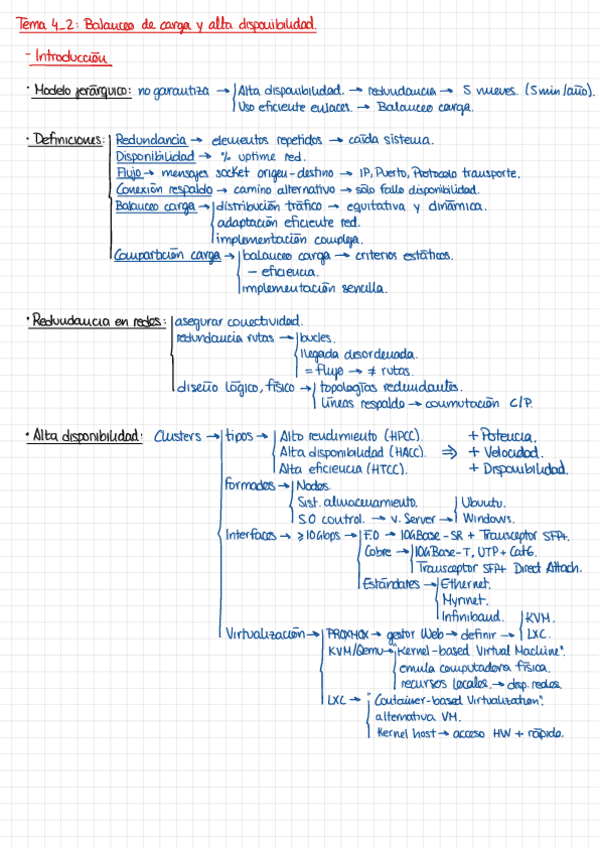 Tema 4_2: Balanceo de carga y alta disponibilidad.
- Introducción
· Modelo jerárquico: no garantiza → Alta disponibilidad. → redundancia → 5 nueves. (5min/año).
Uso eficiente enlaces. → Balanceo carga.
· Definiciones: Redundancia → elementos repetidos → caída sistema.
Disponibilidad → % uptime red.
Flujo → mensajes socket origen-destino → IP, Puerto, Protocolo transporte.
Conexión respaldo → camino alternativo → sólo fallo disponibilidad.
Balanceo carga → distribución tráfico → equitativa y dinámica.
adaptación eficiente red.
implementación compleja.
Compartición carga → balanceo carga → criterios estáticos.
- eficiencia.
implementación sencilla.
· Redundancia en redes: asegurar conectividad.
redundancia rutas → bucles.
llegada desordenada.
= flujo → ≠ rutas.
diseño lógico, físico → topologías redundantes.
líneas respaldo → conmutación C/P.
· Alta disponibilidad: Clusters → tipos → Alto rendimiento (HPCC). + Potencia.
Alta disponibilidad (HACC). ⇒ + Velocidad.
Alta eficiencia (HTCC). + Disponibilidad.
formados → Nodos.
Sist. almacenamiento. Ubuntu.
S.O control. → v. Server → Windows.
Interfaces → ≥10Gbps → F.O → 10GBase-SR + Transceptor SFP+.
Cobre → 10GBase-T, UTP + Cat6.
Transceptor SFP+ Direct Attach.
Estándares → Ethernet.
Myrinet.
Infiniband. KVM.
Virtualización → PROXMOX → gestor Web → definir → LXC.
KVM/Qemu → "Kernel-based Virtual Machine".
emula computadora física.
recursos locales. → disp. redes.
LXC → "Container-based Virtualization".
alternativa VM.
Kernel host → acceso HW + rápido.